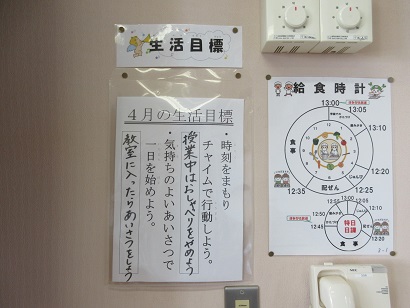 生活目標
4月の生活目標
・時刻をまもり
チャイムで行動しよう。
授業中はおしゃべりをやめよう
・気持ちのよいあいさつで
一日を始めよう。
教室に入ったらあいさつをしよう
給食時計
13:00
13:05
13:10
13:20
12:25
12:35
食事
配ぜん
じゅんび
12:50
12:45
12:35
12:20
12:25
特日日課
食事